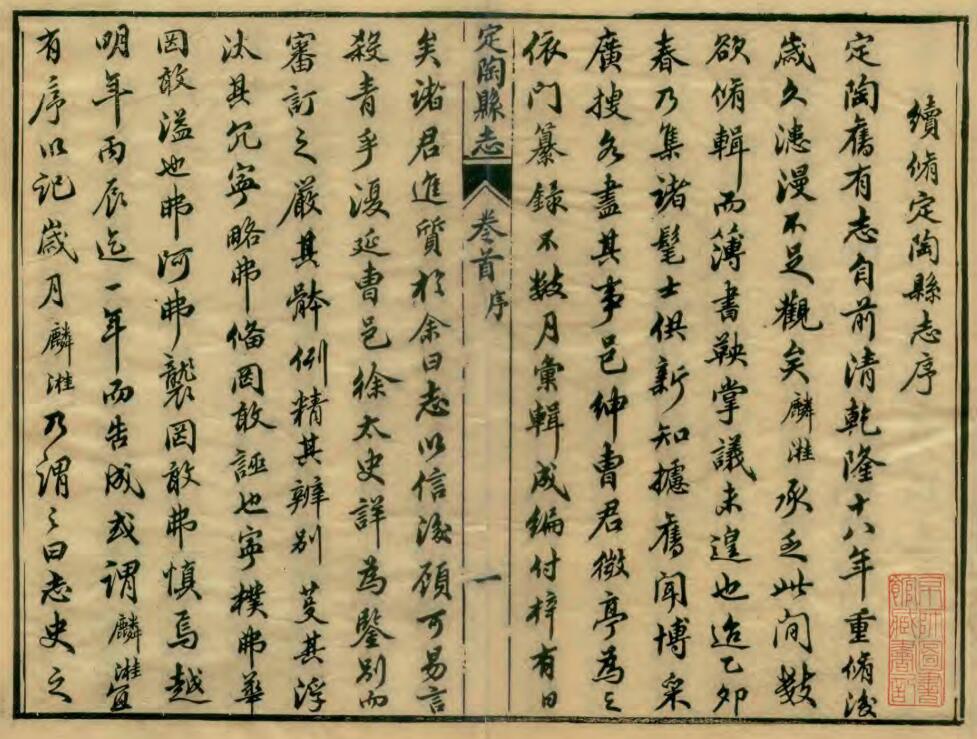 續脩定陶縣志序
定陶舊有志自前清乾隆十八年重脩後
歲久漶漫不足觀矣麟漄承乏此间數
欲脩輯而簿書鞅掌議未遑也迨乙卯
春乃集諸髦士供新知攄舊闻博采
廣搜各盡其事邑绅曹君徵亭為之
依门纂録不數月彙輯成编付梓有日
定陶縣志 卷首 序 一
矣诸君進質於余曰志以信後顾可易言
殺青乎復延曹邑徐太史詳為鑒别而
審訂之嚴其體例精其辨别芟其浮
汰其冗寧略弗俻罔敢誣也寧樸弗華
罔敢溢也弗阿弗襲罔敢弗慎焉越
明年丙辰迄一年而告成或谓麟漄宜
有序以記歲月麟漄乃谓之曰志史之